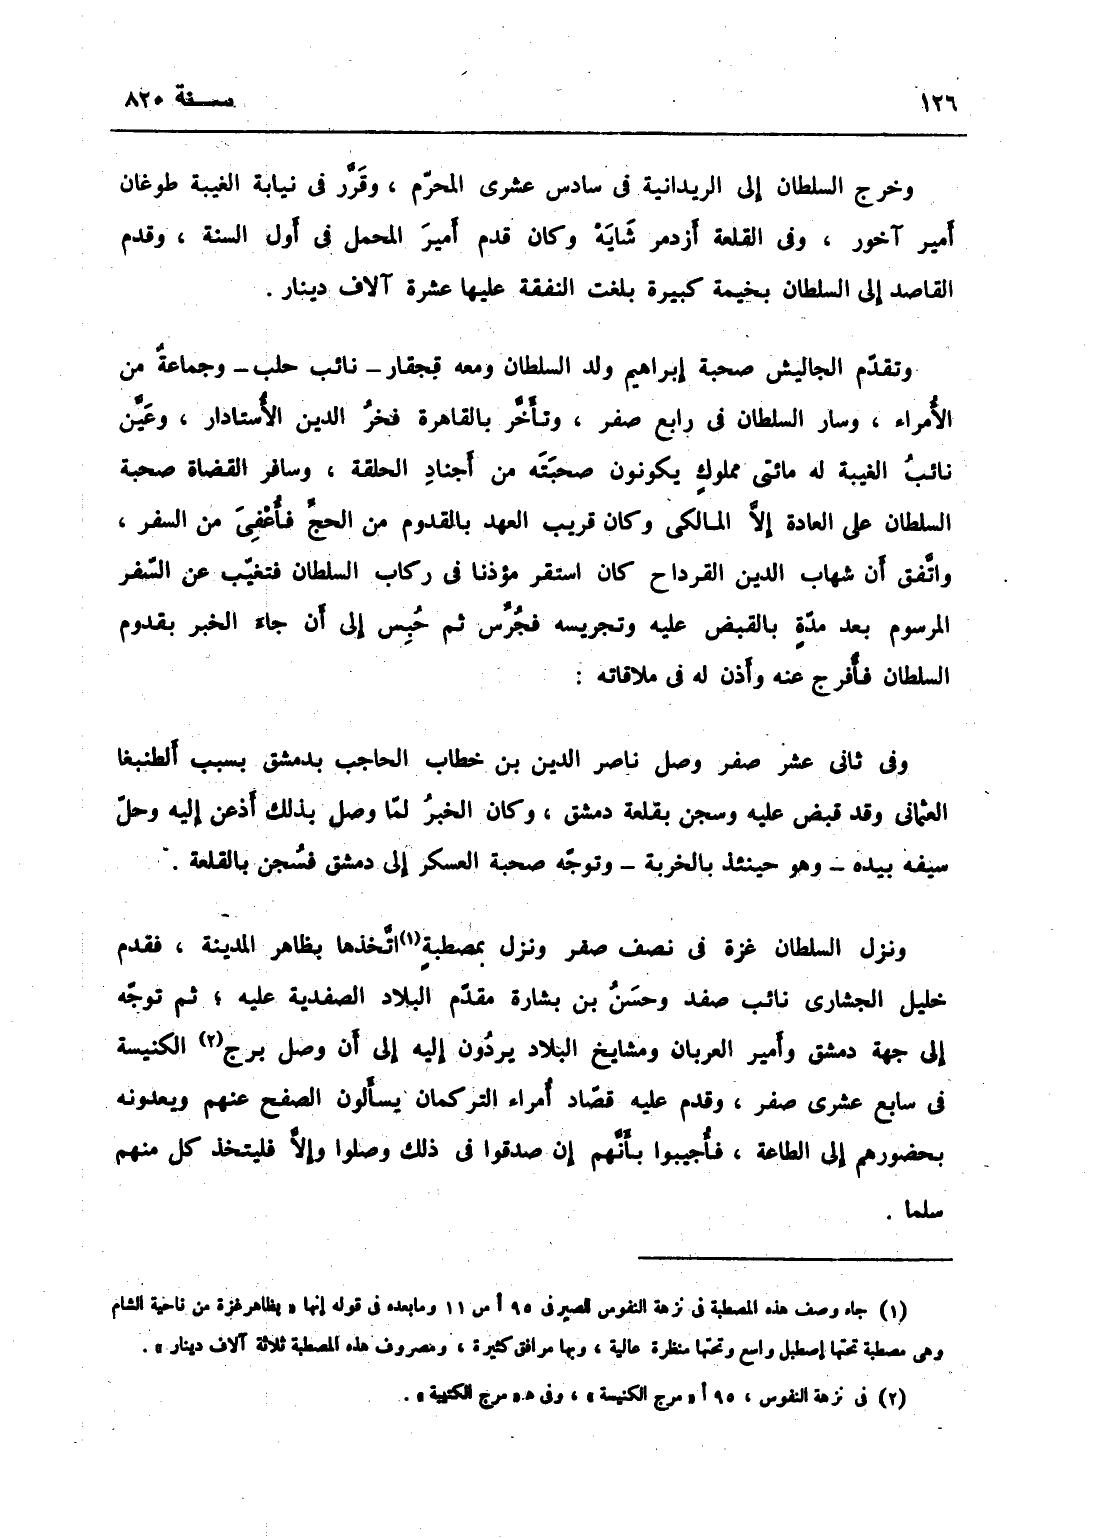 ١٢٦
سـنة ٨٢٠
وخرج السلطان إلى الريدانية فى سادس عشرى المحرّم ، وقَرَّر فى نيابة الغيبة طوغان
أَمير آخور ، وفى القلعة أَزدمر شَايَهْ وكان قدم أَميرَ المحمل فى أَول السنة ، وقدم
القاصد إلى السلطان بخيمة كبيرة بلغت النفقة عليها عشرة آلاف دينار .
وتقدّم الجاليش صحبة إبراهيم ولد السلطان ومعه قجقار ـ نائب حلب ـ وجماعةٌ من
الأُمراء ، وسار السلطان فى رابع صفر ، وتأَخَّر بالقاهرة فخرُ الدين الأُستادار ، وعَيَّن
نائبُ الغيبة له مائتى مملوكٍ يكونون صحبَتَه من أَجنادِ الحلقة ، وسافر القضاة صحبة
السلطان على العادة إلاَّ المالكى وكان قريب العهد بالقدوم من الحجّ فأُعْفِىَ من السفر ،
واتَّفق أَن شهاب الدين القرداح كان استقر مؤذنا فى ركاب السلطان فتغيّب عن السّفر
المرسوم بعد مدّةٍ بالقبض عليه وتجريسه فجُرِّس ثم حُبِس إلى أَن جاءَ الخبر بقدوم
السلطان فأُفرج عنه وأَذن له فى ملاقاته :
وفى ثانى عشر صفر وصل ناصر الدين بن خطاب الحاجب بدمشق بسبب أَلطنبغا
العثمانى وقد قبض عليه وسجن بقلعة دمشق ، وكان الخبرُ لمّا وصل بذلك أَذعن إليه وحلّ
سيفه بيده ـ وهو حينئذ بالخربة ـ وتوجّه صحبة العسكر إلى دمشق فسُجن بالقلعة .
ونزل السلطان غزة فى نصف صفر ونزل بمصطبةٍ(١)اتَّخذها بظاهر المدينة ، فقدم
خليل الجشارى نائب صفد وحسَنُ بن بشارة مقدّم البلاد الصفدية عليه ؛ ثم توجّه
إلى جهة دمشق وأَمير العربان ومشايخ البلاد يردُون إليه إلى أَن وصل برج(٢) الكنيسة
فى سابع عشرى صفر ، وقدم عليه قصّاد أُمراء التركمان يسأَلون الصفح عنهم ويعدونه
بحضورهم إلى الطاعة ، فأُجيبوا بأَنَّهم إن صدقوا فى ذلك وصلوا وإلاَّ فليتخذ كل منهم
سلما .
(١) جاء وصف هذه المصطبة فى نزهة النفوس للصير فى ٩٥ أ س ١١ ومابعده فى قوله إنها « بظاهر غزة من ناحية الشام
وهى مصطبة تحتها إصطبل واسع وتحتها منظرة عالية ، وبها مرافق كثيرة ، ومصروف هذه المصطبة ثلاثة آلاف دينار » .
(٢) فى نزهة النفوس ، ٩٥ أ « مرج الكنيسة » ، وفى ه « مرج الكتيبة » .